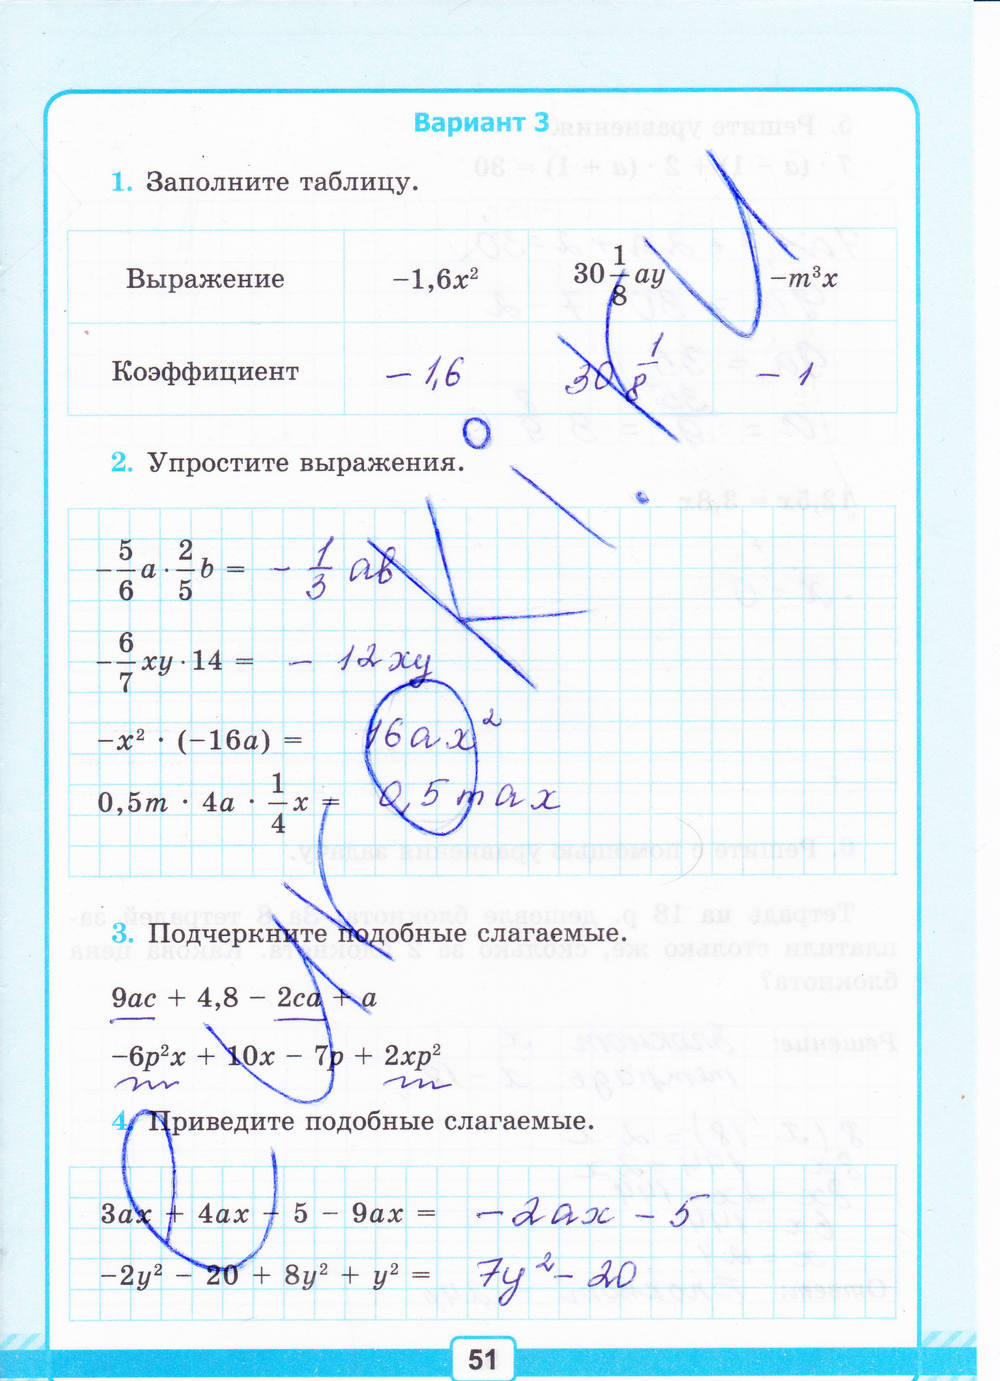 Вариант 3
1. Заполните таблицу.
Выражение −1,6x² 30 1/8 ay −m³x
Коэффициент − 1,6 30 1/8 − 1
2. Упростите выражения.
−5/6 a · 2/5 b = − 1/3 ab
−6/7 xy · 14 = − 12xy
−x² · (−16a) = 16ax²
0,5m · 4a · 1/4 x = 0,5 max
3. Подчеркните подобные слагаемые.
9ac + 4,8 − 2ca + a
−6p²x + 10x − 7p + 2xp²
4. Приведите подобные слагаемые.
3ax + 4ax − 5 − 9ax = −2ax − 5
−2y² − 20 + 8y² + y² = 7y² − 20
51